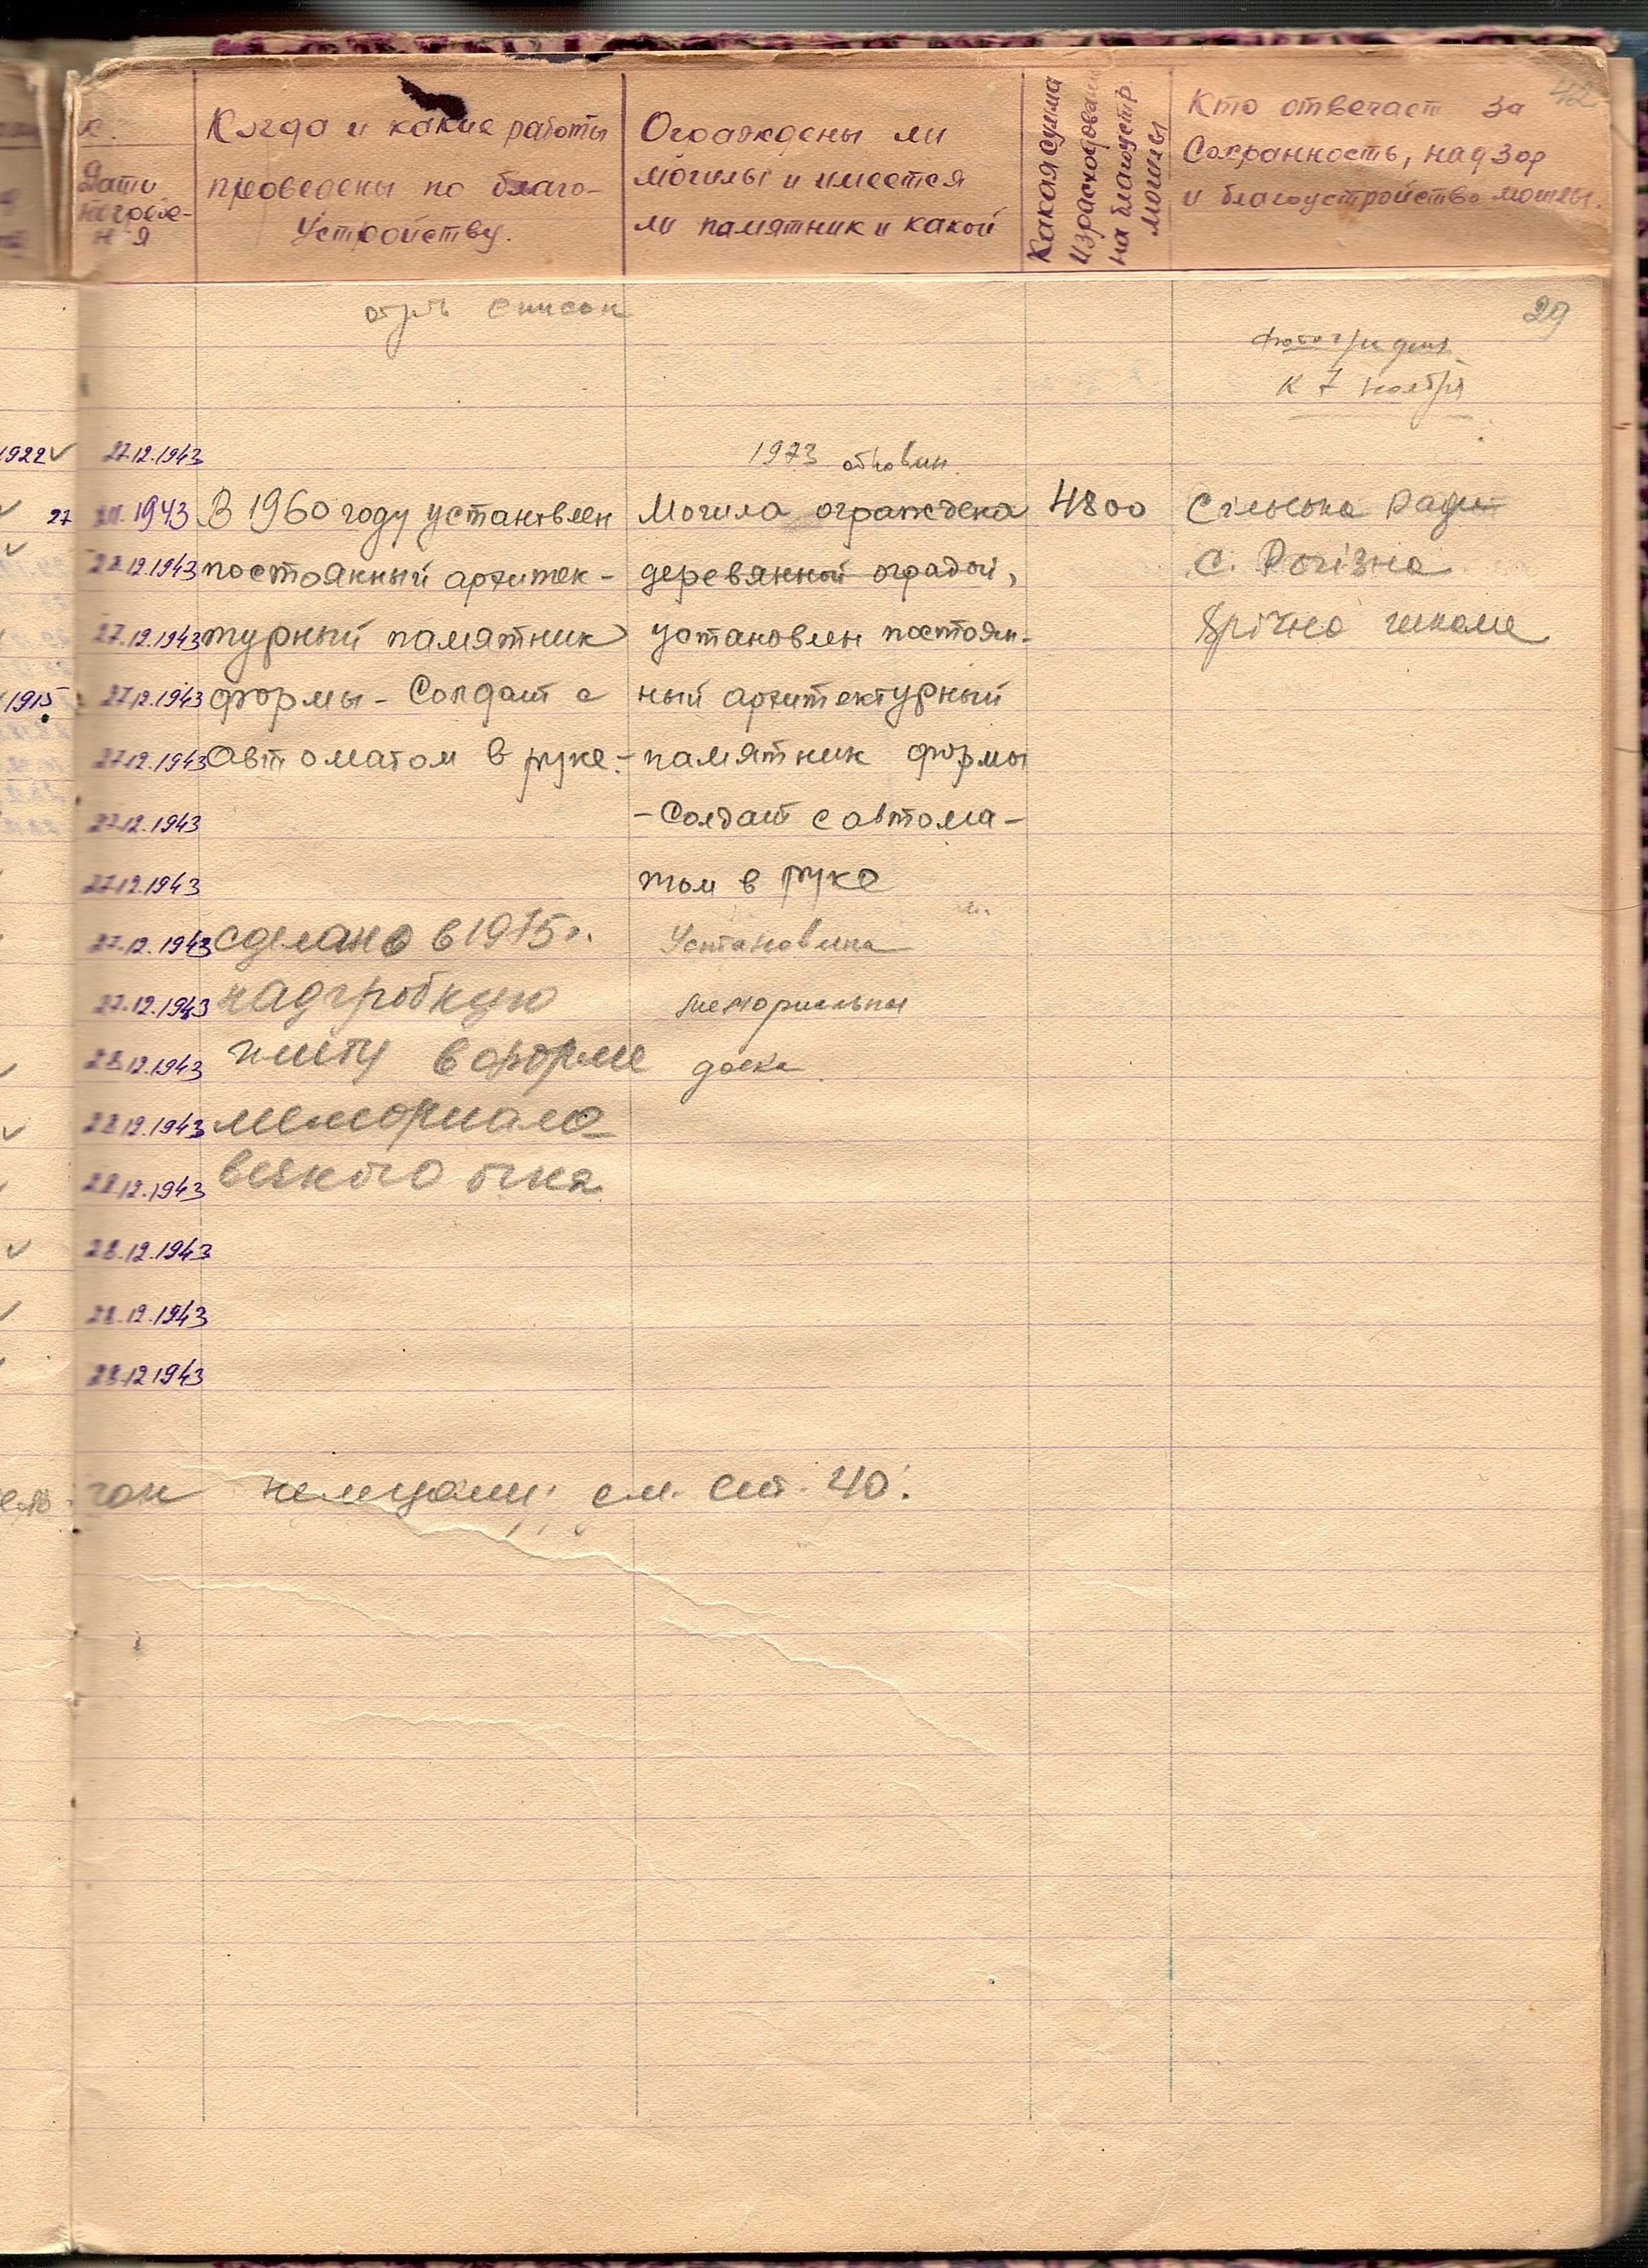 42
к.
Дата
погребе-
ния
Когда и какие работы
проведены по благо-
устройству.
Ограждены ли
могилы и имеется
ли памятник и какой
Какая сумма
израсходована
на благоустр.
могилы
Кто отвечает за
Сохранность, надзор
и благоустройство могилы.
список
29
к 7 ноября
1922 27.12.1943
1973
27 XII. 1943 В 1960 году установлен Могила ограждена 4800 Сільська Рада
28.12.1943 постоянный архитек- деревянной оградой, С. Рогізна
27.12.1943 турный памятник установлен постоян-
1915 27.12.1943 формы - Солдат с ный архитектурный
27.12.1943 Автоматом в руке.- памятник формы
27.12.1943 - Солдат с автома-
27.12.1943 том в руке
27.12.1943 сделано в 1975 г. Установлена
27.12.1943 надгробную мемориальна
28.12.1943 плиту в форме доска
28.12.1943
28.12.1943 огня
28.12.1943
28.12.1943
28.12.1943
немцами; см. ст. 40.